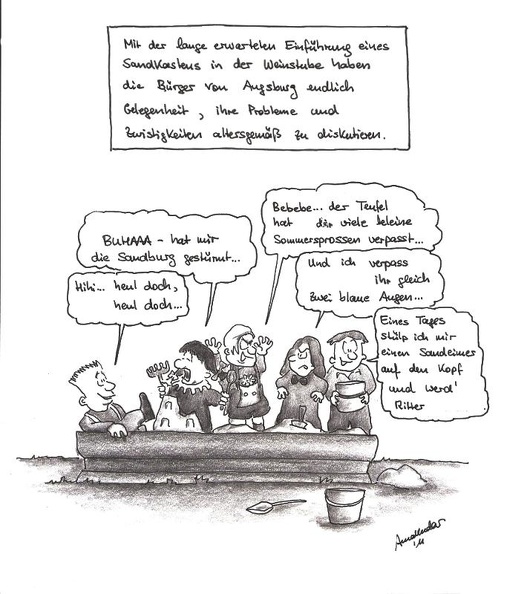 Mit der lange erwarteten Einführung eines
Sandkastens in der Weinstube haben
die Bürger von Augsburg endlich
Gelegenheit, ihre Probleme und
Zwistigkeiten altersgemäß zu diskutieren.
BUHAAA - hat mir
die Sandburg gestürmt...
Hihi... heul doch,
heul doch...
Bebebe... der Teufel
hat dir viele kleine
Sommersprossen verpasst...
Und ich verpass
ihr gleich
zwei blaue Augen...
Eines Tages
stülp ich mir
einen Sandeimer
auf den Kopf
und werd'
Ritter
'11